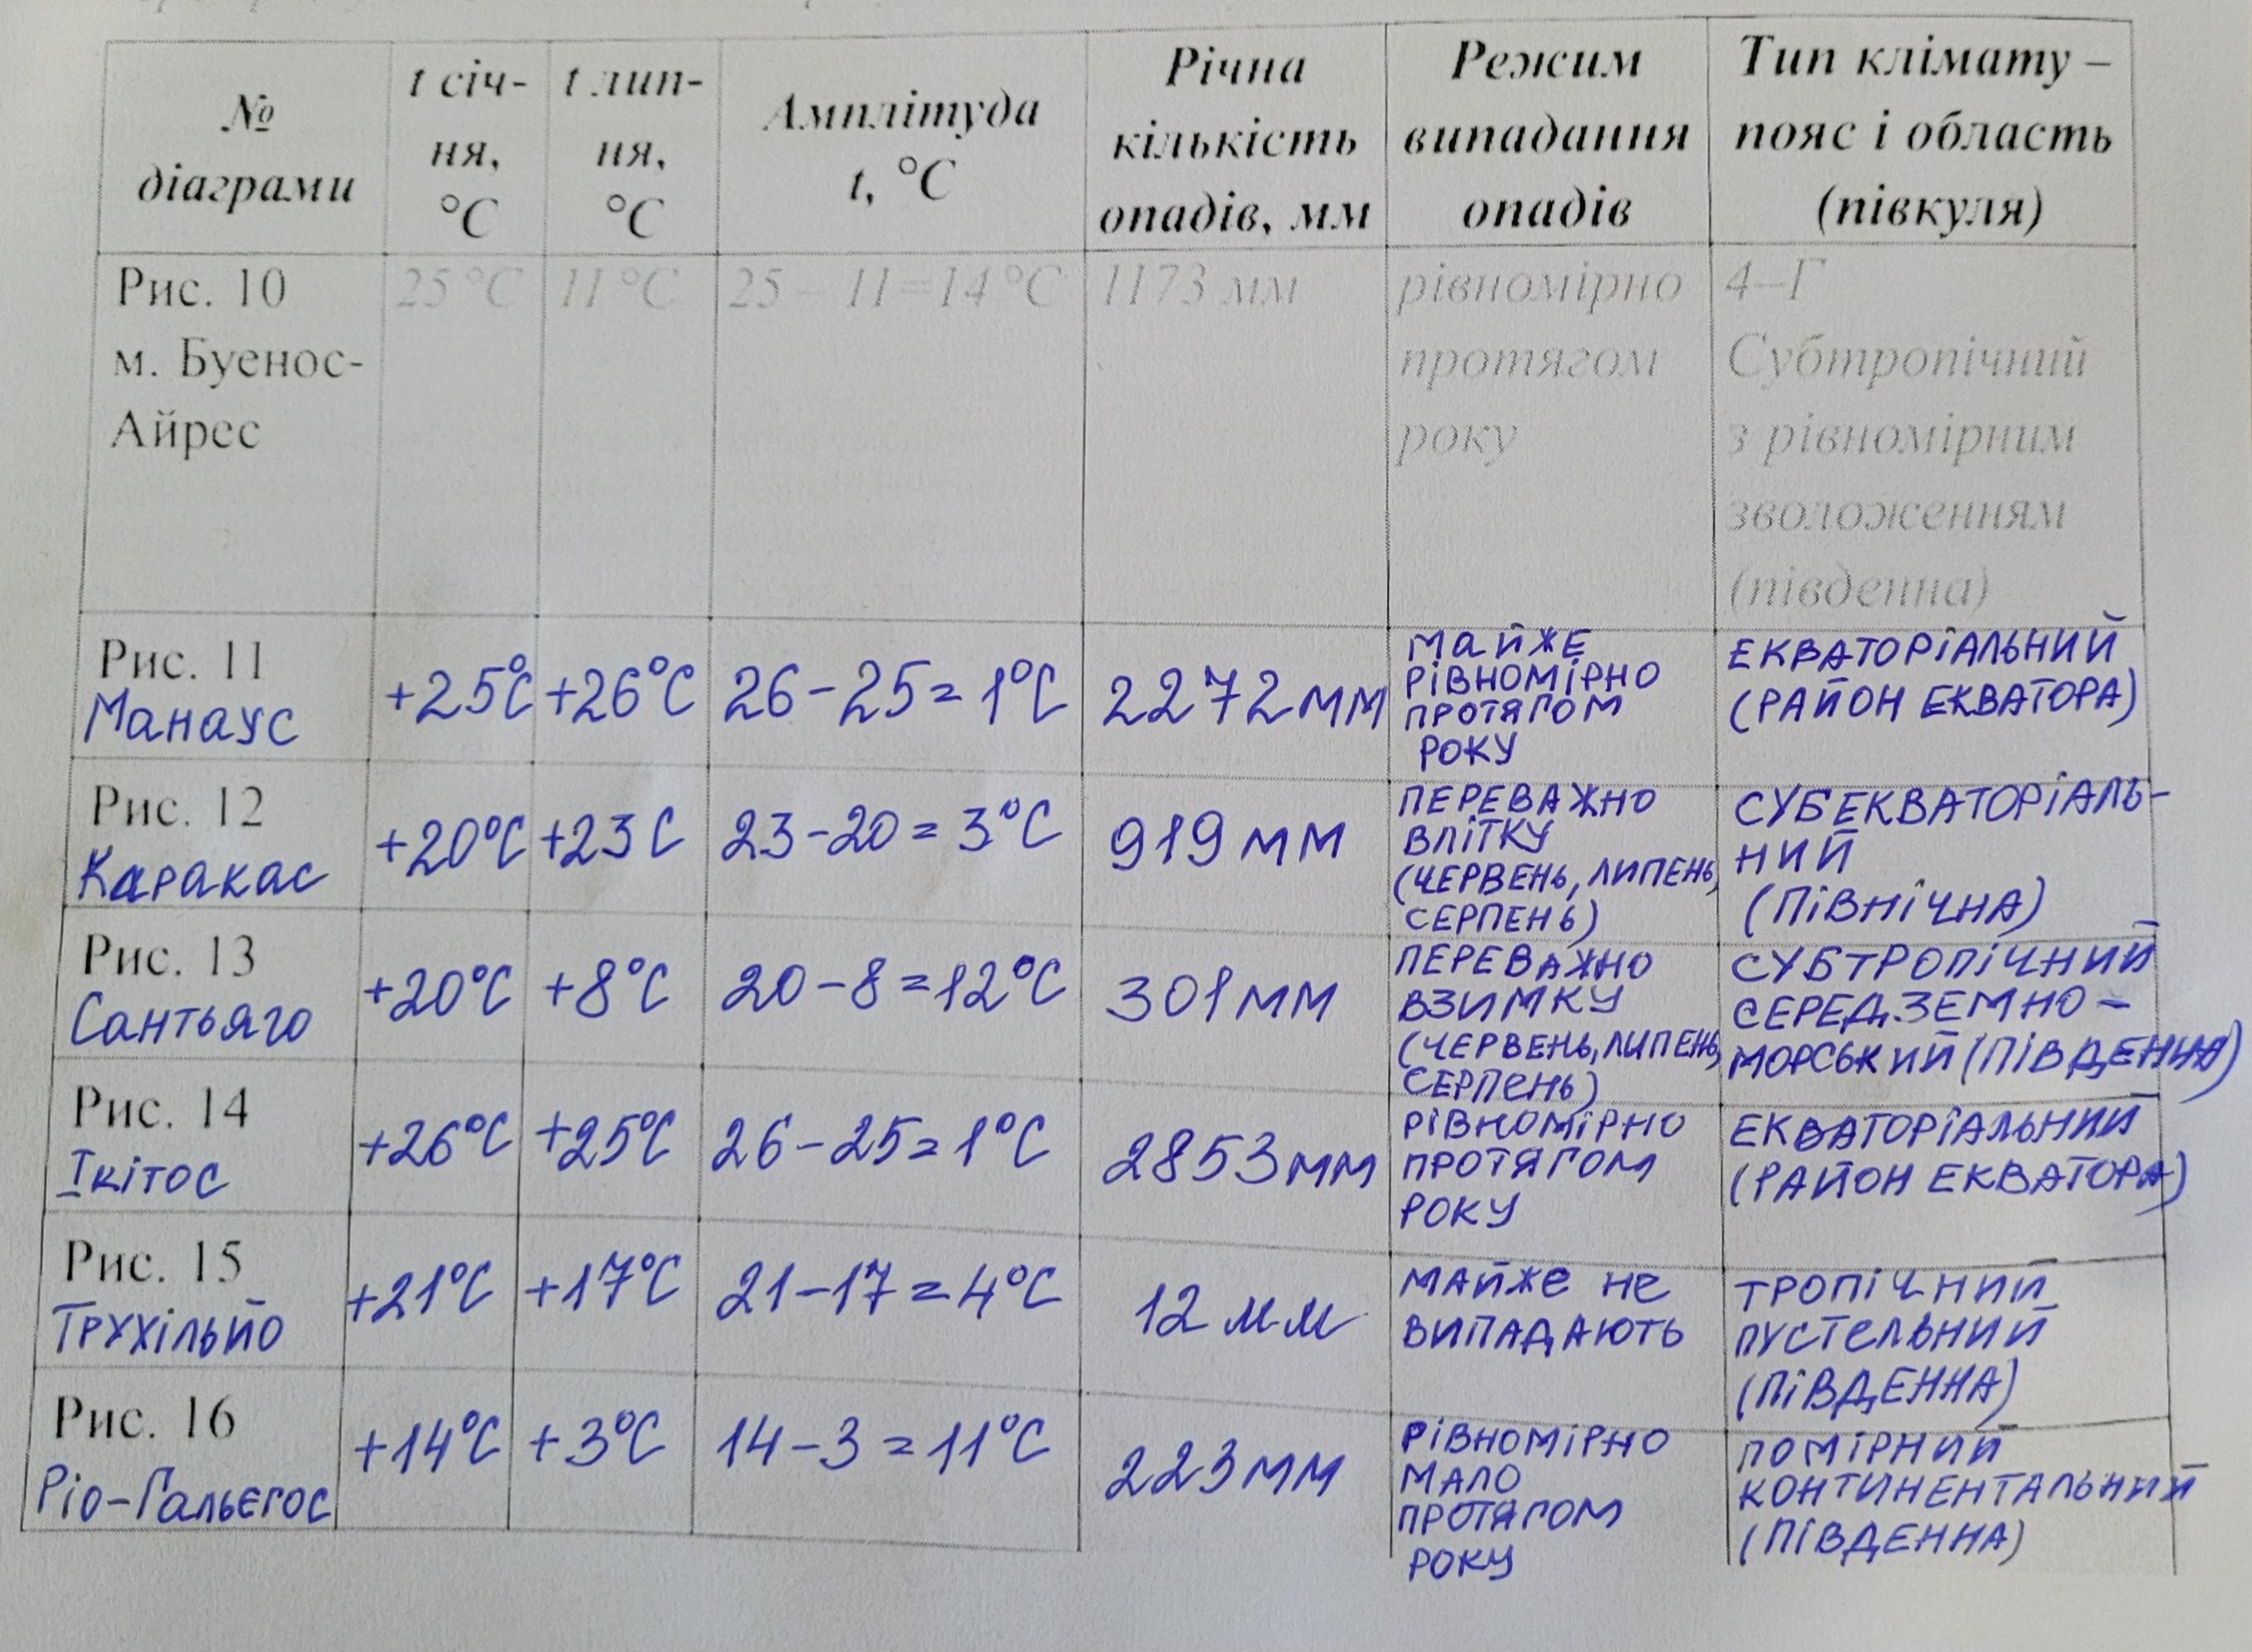 №
діаграми
t січ-
ня,
°C
t лип-
ня,
°C
Амплітуда
t, °C
Річна
кількість
опадів, мм
Режим
випадання
опадів
Тип клімату –
пояс і область
(півкуля)
Рис. 10
м. Буенос-
Айрес
25 °C
11 °C
25 – 11=14 °C
1173 мм
рівномірно
протягом
року
4–Г
Субтропічний
з рівномірним
зволоженням
(південна)
Рис. 11
Манаус
+25°C
+26°C
26-25=1°C
2272мм
МАЙЖЕ
РІВНОМІРНО
ПРОТЯГОМ
РОКУ
ЕКВАТОРІАЛЬНИЙ
(РАЙОН ЕКВАТОРА)
Рис. 12
Каракас
+20°C
+23C
23-20=3°C
919мм
ПЕРЕВАЖНО
ВЛІТКУ
(ЧЕРВЕНЬ, ЛИПЕНЬ,
СЕРПЕНЬ)
СУБЕКВАТОРІАЛЬ-
НИЙ
(ПІВНІЧНА)
Рис. 13
Сантьяго
+20°C
+8°C
20-8=12°C
301мм
ПЕРЕВАЖНО
ВЗИМКУ
(ЧЕРВЕНЬ, ЛИПЕНЬ,
СЕРПЕНЬ)
СУБТРОПІЧНИЙ
СЕРЕДЗЕМНО-
МОРСЬКИЙ (ПІВДЕННА)
Рис. 14
Ікітос
+26°C
+25°C
26-25=1°C
2853мм
РІВНОМІРНО
ПРОТЯГОМ
РОКУ
ЕКВАТОРІАЛЬНИЙ
(РАЙОН ЕКВАТОРА)
Рис. 15
Трухільйо
+21°C
+17°C
21-17=4°C
12 мм
МАЙЖЕ НЕ
ВИПАДАЮТЬ
ТРОПІЧНИЙ
ПУСТЕЛЬНИЙ
(ПІВДЕННА)
Рис. 16
Ріо-Гальєгос
+14°C
+3°C
14-3=11°C
223мм
РІВНОМІРНО
МАЛО
ПРОТЯГОМ
РОКУ
ПОМІРНИЙ
КОНТИНЕНТАЛЬНИЙ
(ПІВДЕННА)